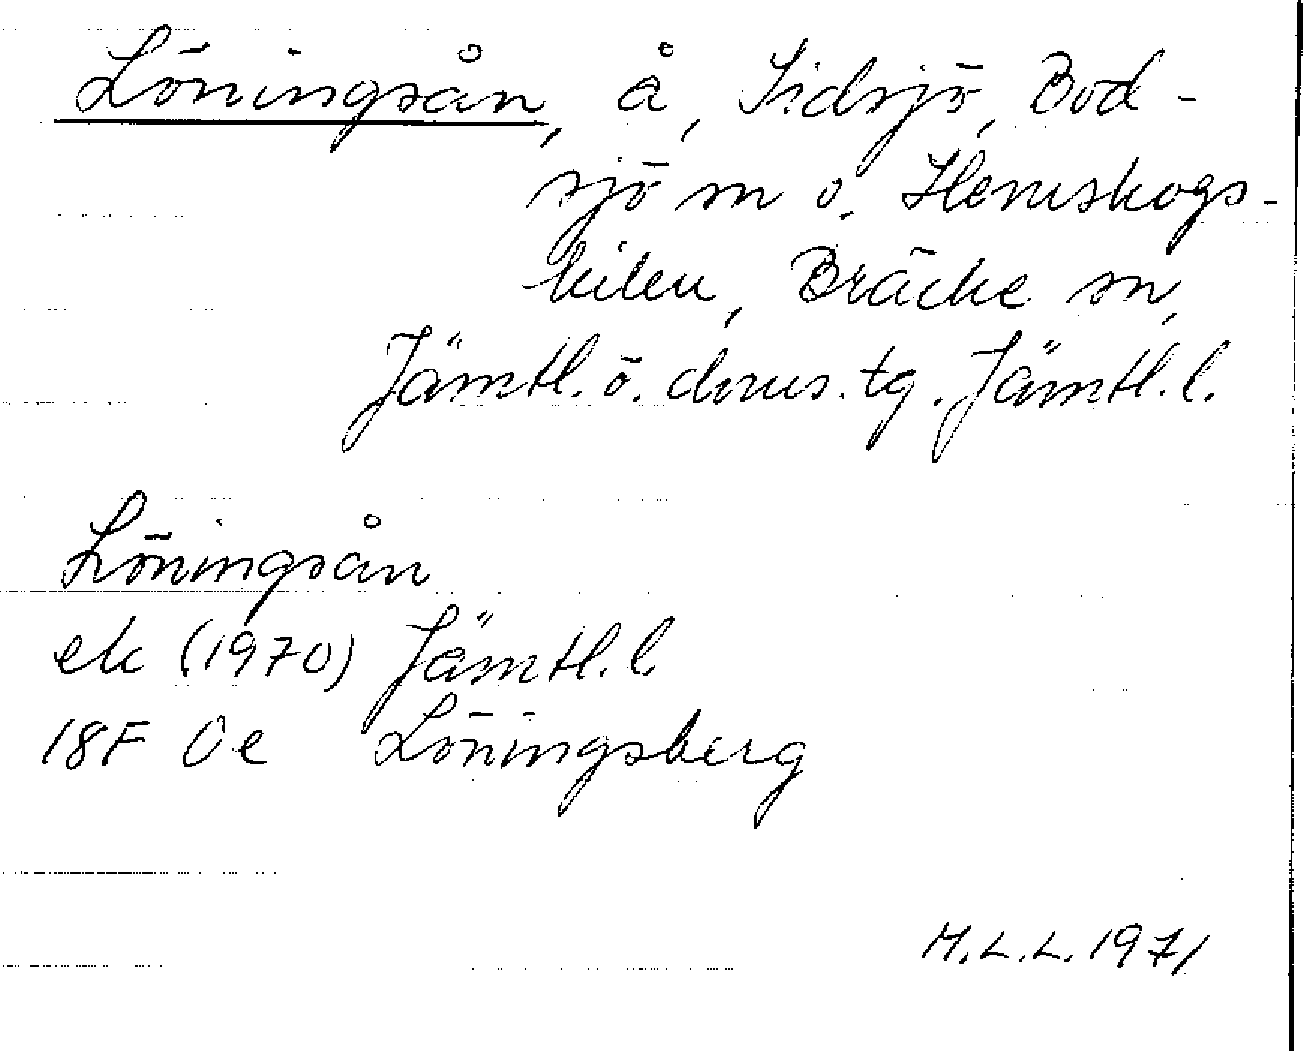 Löningsån, å, Sidsjö, Bod-
sjö sn o. Hemskogs-
kilen, Bräcke sn,
Jämtl. ö. doms. tg. Jämtl. l.
Löningsån
ek (1970) Jämtl. l.
18F 0e Löningsberg
M.L.L. 1971